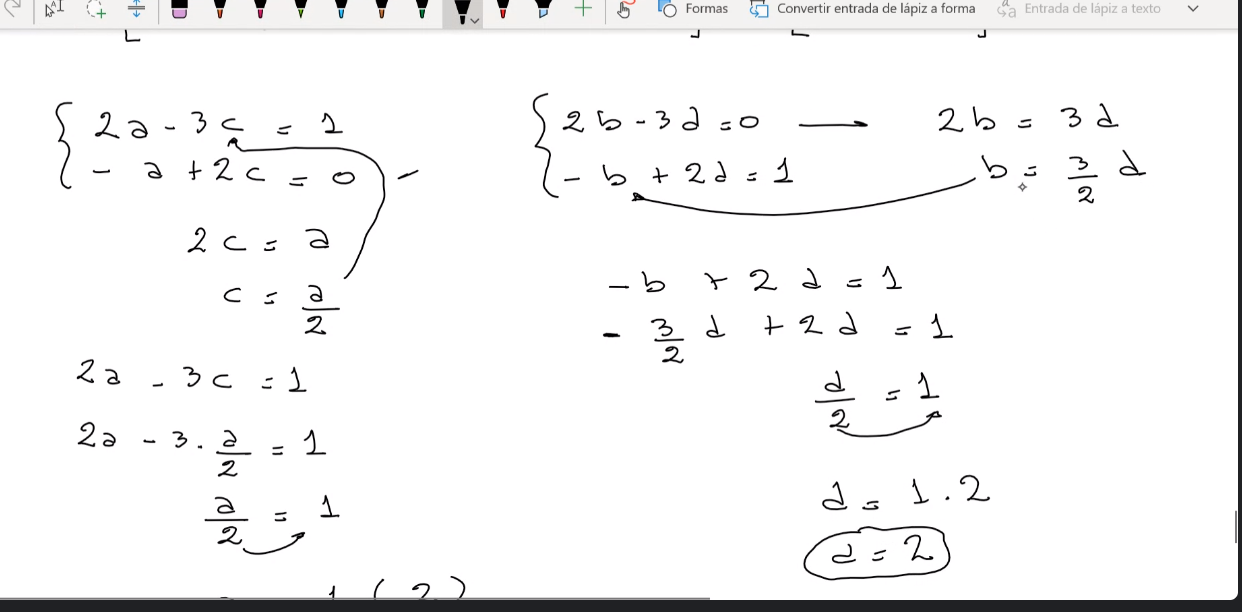 Formas Convertir entrada de lápiz a forma Entrada de lápiz a texto
2a - 3c = 1
- a + 2c = 0
2c = a
c = a/2
2a - 3c = 1
2a - 3 . a/2 = 1
a/2 = 1
1 (2)
2b - 3d = 0 — 2b = 3d
- b + 2d = 1 b = 3/2 d
- b + 2d = 1
- 3/2 d + 2d = 1
d/2 = 1
d = 1 . 2
d = 2